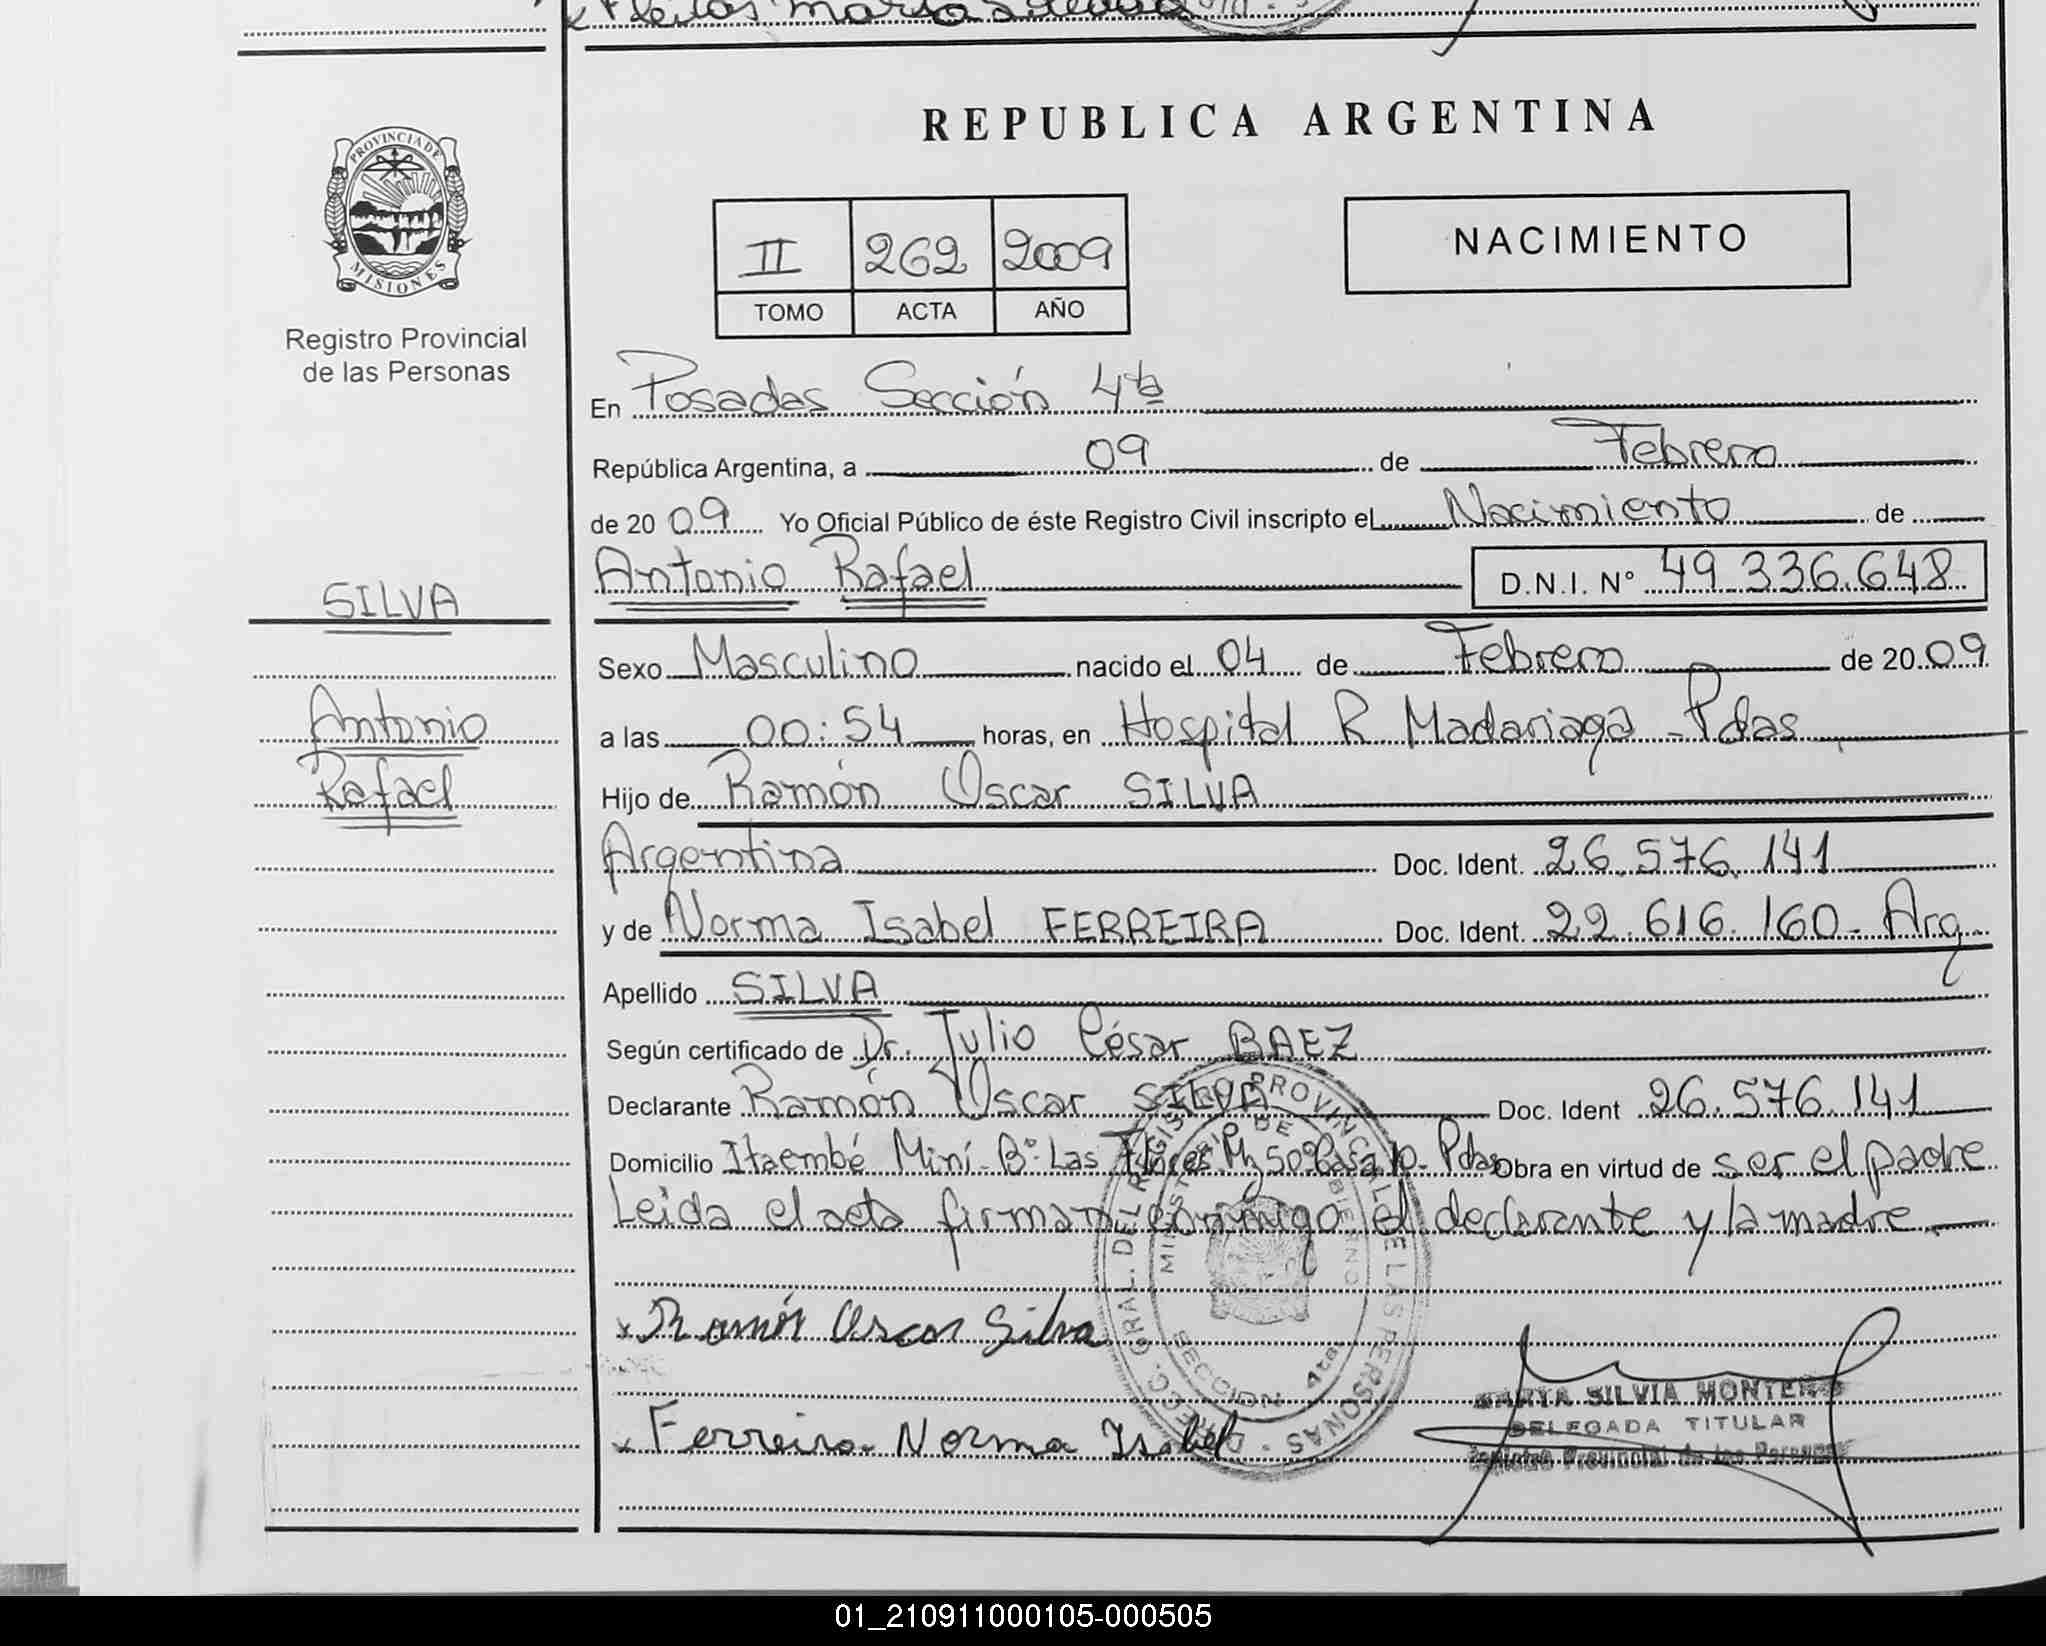 REPUBLICA ARGENTINA
PROVINCIA DE
MISIONES
Registro Provincial
de las Personas
II 262 2009
TOMO ACTA AÑO
NACIMIENTO
En Posadas Sección 4ta
República Argentina, a 09 de Febrero
de 20 09 Yo Oficial Público de éste Registro Civil inscripto el Nacimiento de
Antonio Rafael D.N.I. N° 49.336.648
SILVA
Antonio
Rafael
Sexo Masculino nacido el 04 de Febrero de 20 09
a las 00:54 horas, en Hospital R Madariaga - Pdas
Hijo de Ramón Oscar SILVA
Argentina Doc. Ident. 26.576.141
y de Norma Isabel FERREIRA Doc. Ident. 22.616.160 - Arg
Apellido SILVA
Según certificado de Dr. Julio César BAEZ
Declarante Ramón Oscar SILVA Doc. Ident 26.576.141
Domicilio Itaembé Miní - B° Las Flores Mz 50 Casa 10 - Pdas Obra en virtud de ser el padre
Leida el acta firman conmigo el declarante y la madre
DIRECC. GRAL. DEL REGISTRO PROVINCIAL DE LAS PERSONAS
MINISTERIO DE GOBIERNO
SECCION 4ta
x Ramón Oscar Silva
x Ferreira Norma Isabel
MARTA SILVIA MONTERO
DELEGADA TITULAR
Registro Provincial de las Personas
01_210911000105-000505